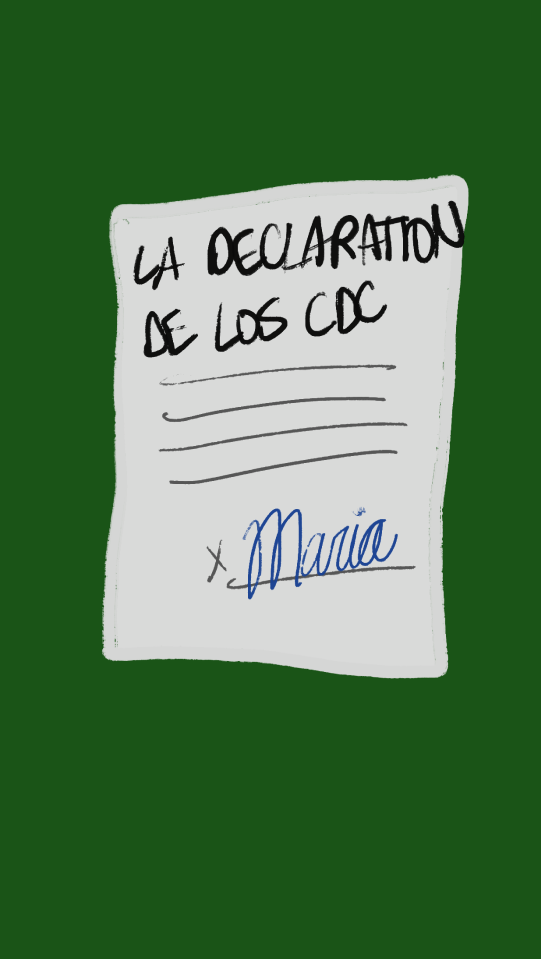 LA DECLARATION
DE LOS CDC
X Maria